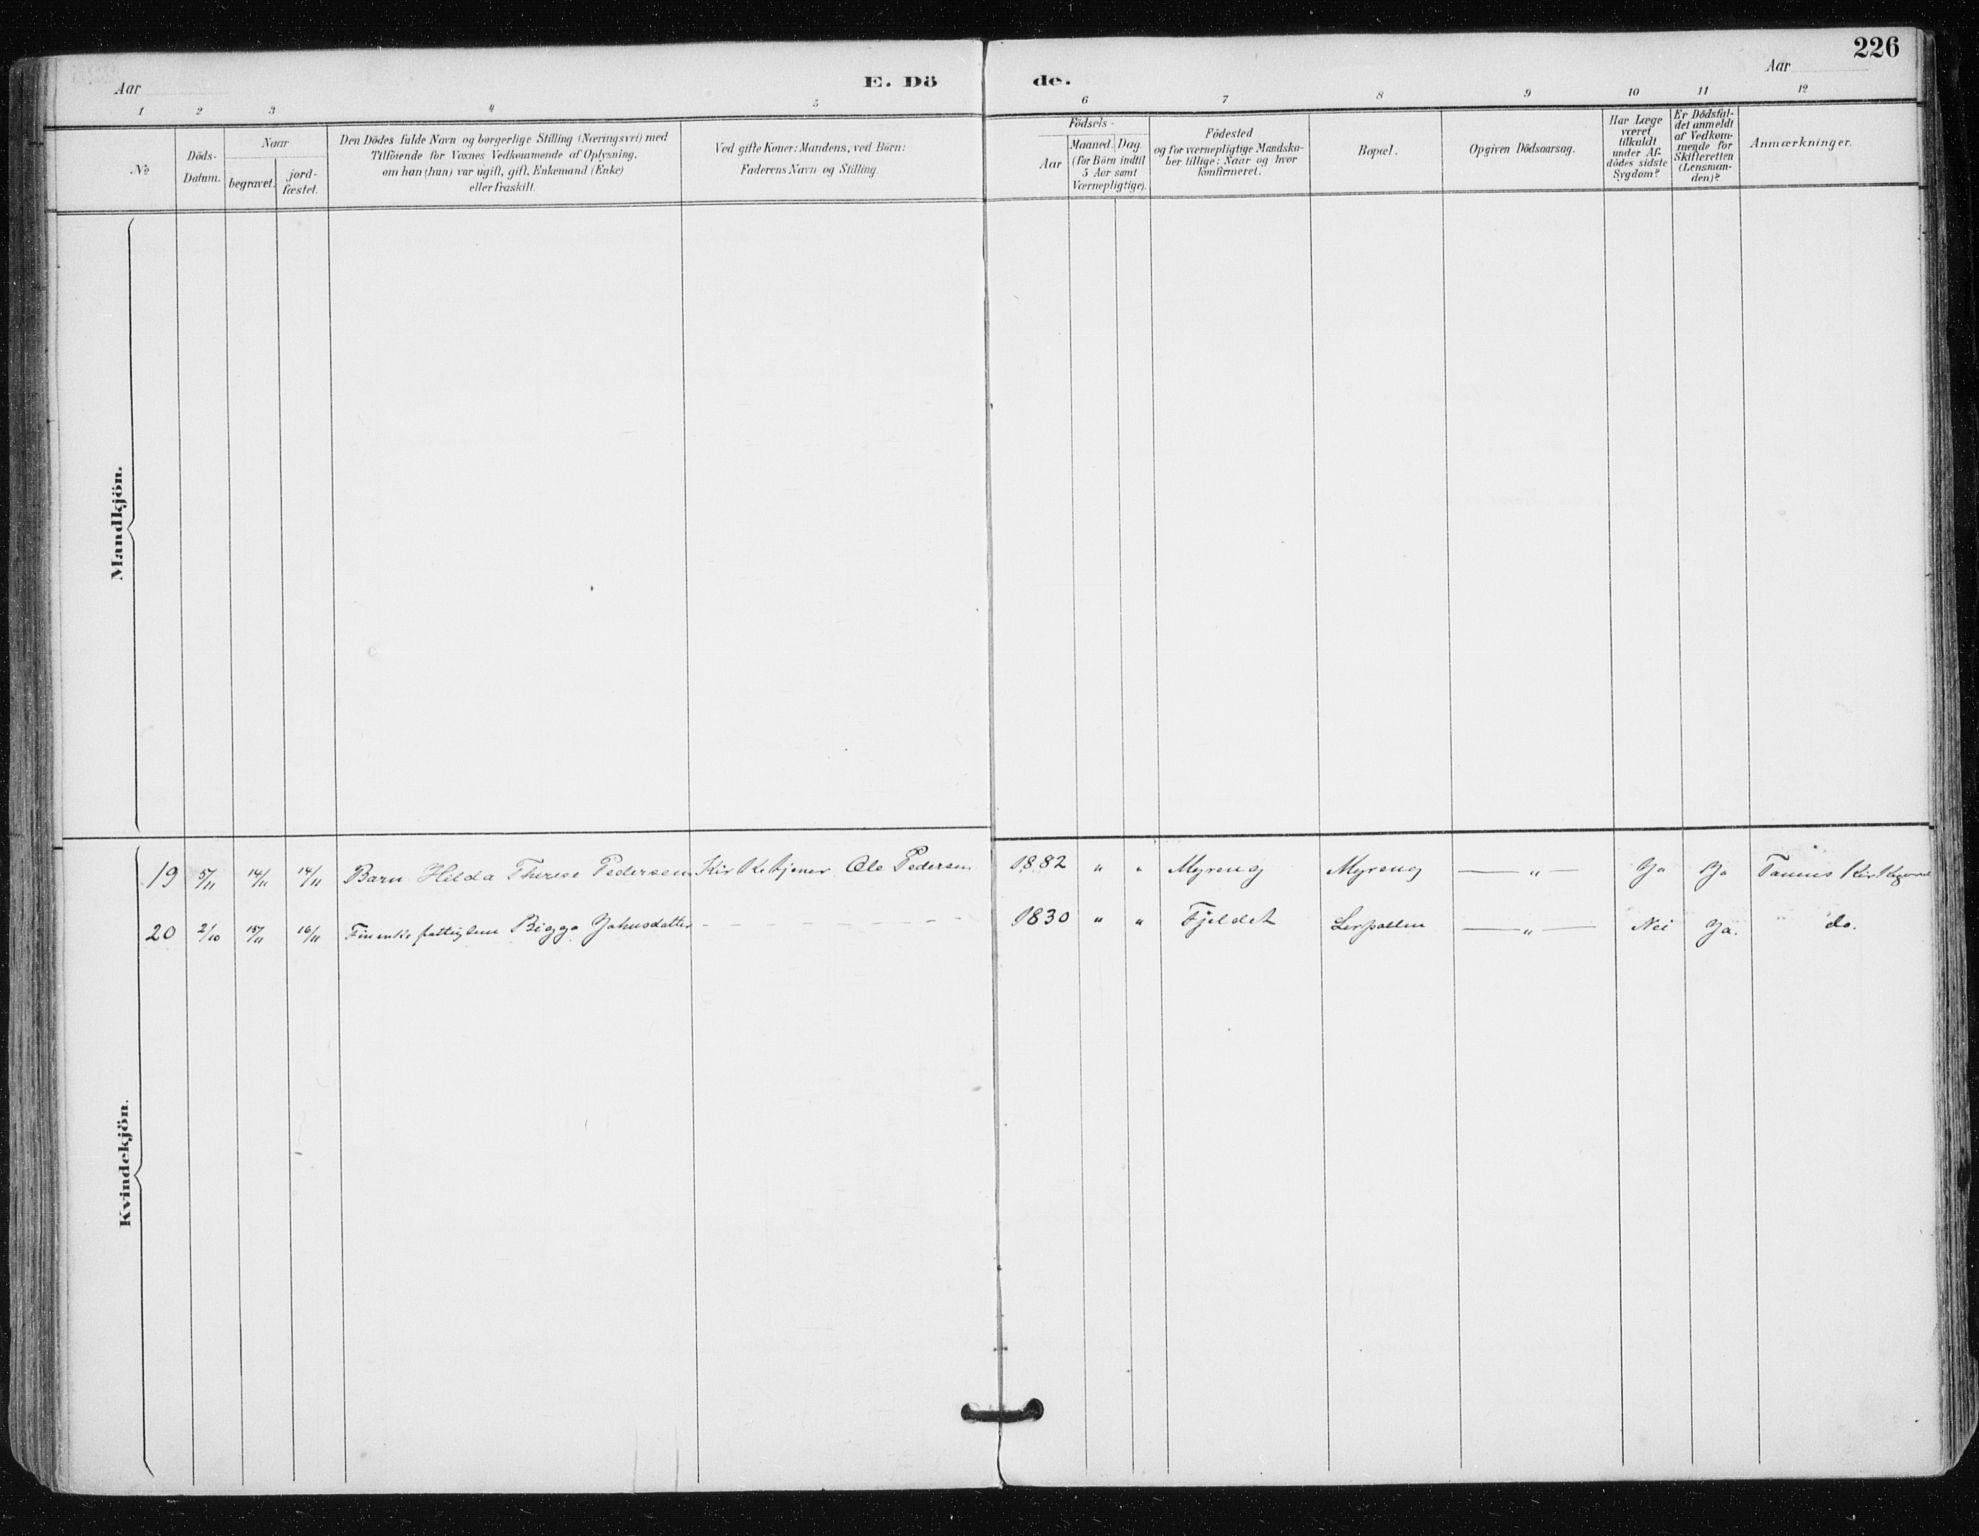 226
Aar
E. Dö
de.
Aar
1 2 3 4 5 6 7 8 9 10 11 12
No
Döds-
Datum.
Naar
begravet.
jord-
fæstet.
Den Dödes fulde Navn og borgerlige Stilling (Næringsvei) med
Tilföiende for Voxnes Vedkommende af Oplysning,
om han (hun) var ugift, gift, Enkemand (Enke)
eller fraskilt.
Ved gifte Koner: Mandens, ved Börn:
Faderens Navn og Stilling.
Födsels-
Aar
Maaned.
Dag.
(for Börn indtil
5 Aar samt
Værnepligtige).
Födested
og for værnepligtige Mandska-
ber tillige: Naar og hvor
konfirmeret.
Bopæl.
Opgiven Dödsaarsag.
Har Læge
været
tilkaldt
under Af-
dödes sidste
Sygdom?
Er Dödsfal-
det anmeldt
af Vedkom-
mende for
Skifteretten
(Lensman-
den)?
Anmærkninger.
Mandkjön.
Kvindekjön.
19 5/11 14/11 14/11 Barn Hilda Therese Pedersen Kirketjener Ole Pedersen 1882 " " Myreng Myreng — " — Ja Ja Tanens Kirkegaard
20 2/10 15/11 16/11 Finenke fattiglem Bigga Johnsdatter - - - - - - - 1830 " " Fjeldet Lerpollen — " — Nei Ja. do.